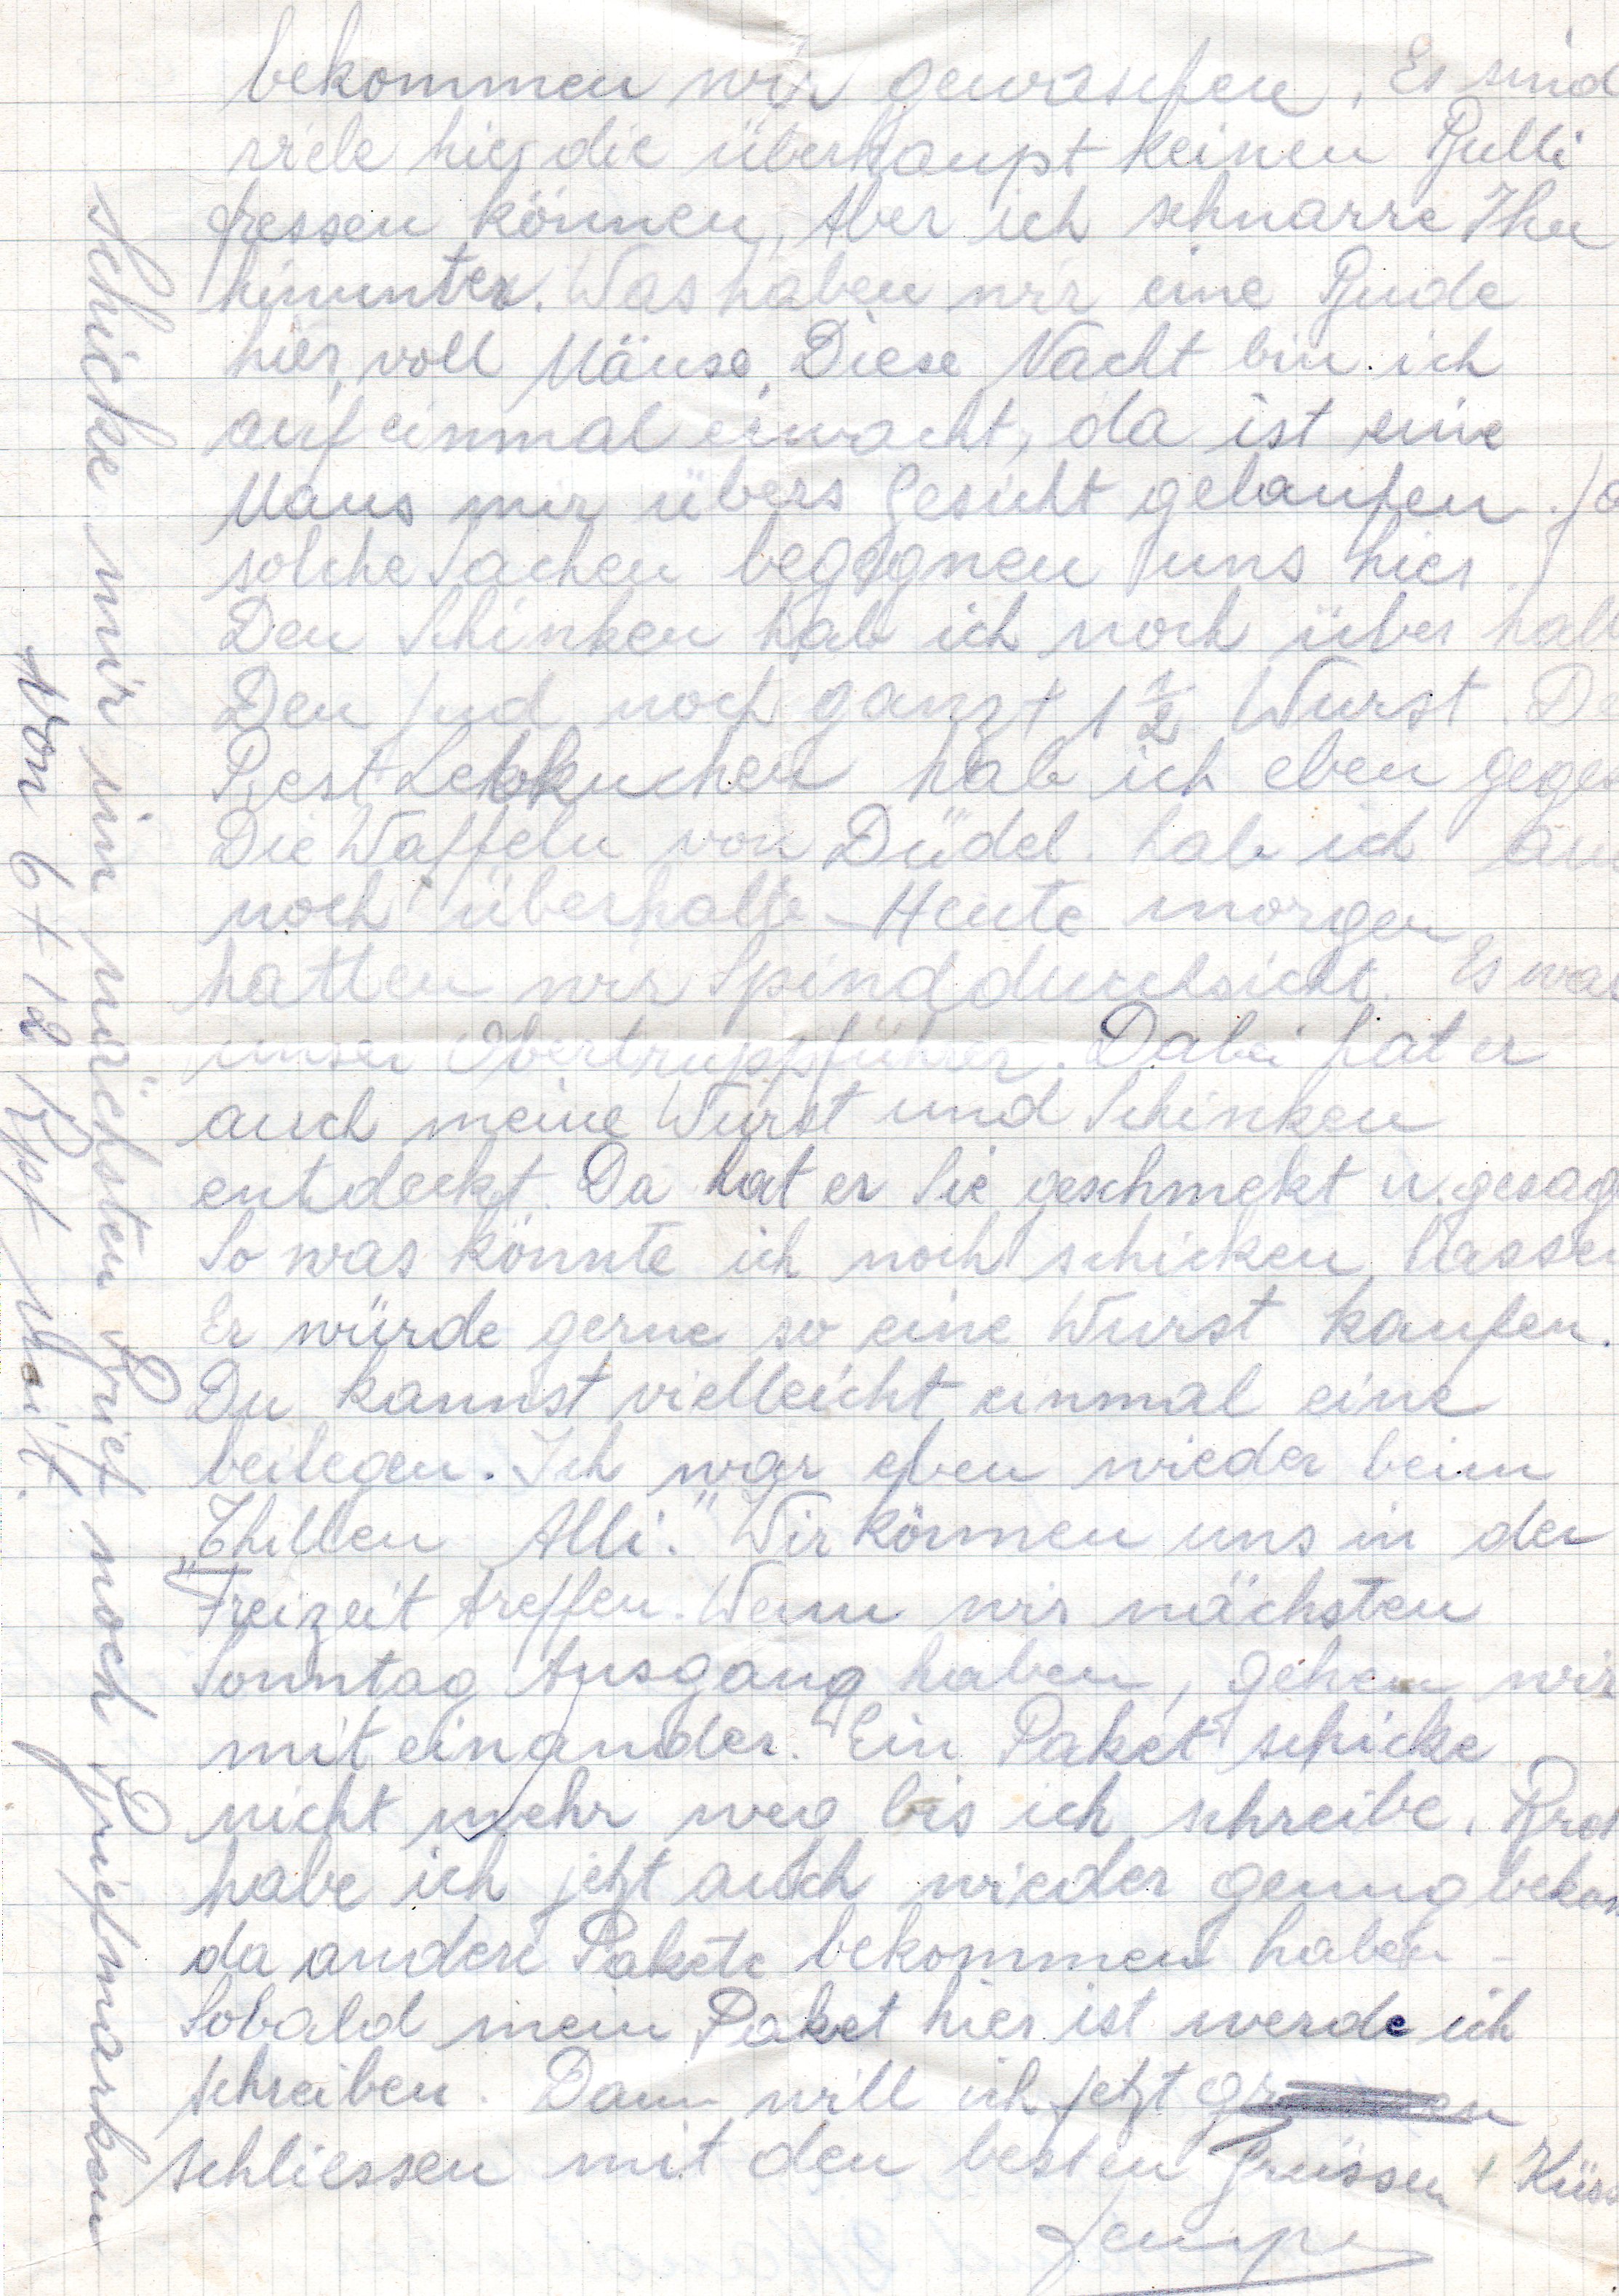 bekommen wir gewaschen. Es sind
viele hier die überhaupt keinen Bulli
fressen können. Aber ich schnarre Ihn
hinunter. Was haben wir eine Bude
hier voll Mäuse. Diese Nacht bin ich
auf einmal erwacht, da ist eine
Maus mir übers Gesicht gelaufen. Ja
solche Sachen begegnen uns hier.
Den Schinken hab ich noch über halb
Den noch ganz + 1 1/2 Wurst. De
Rest Lebkuchen hab ich eben geges
Die Waffeln von Düdel hab ich au
noch überhalb – Heute morgen
hatten wir Spinddurchsicht. Es war
unser Obertruppführer. Dabei hat er
auch meine Wurst und Schinken
entdeckt. Da hat er Sie geschmekt u. gesagt
So was könnte ich noch schicken lassen
Er würde gerne so eine Wurst kaufen.
Du kannst vielleicht einmal eine
beilegen. Ich war eben wieder beim
„Thillen Alli." Wir können uns in der
Freizeit treffen. Wenn wir nächsten
Sonntag Ausgang haben, gehen wir
miteinander. Ein Paket schicke
nicht mehr weg bis ich schreibe. Brot
habe ich jetzt auch wieder genug bekom
da andere Pakete bekommen haben –
Sobald mein Paket hier ist werde ich
schreiben. Dann will ich jetzt
schliessen mit den besten Grüssen + Küss
Jempi
Schicke mir im nächsten Brief noch Briefmarken
von 6 + 12 Rpf mit.